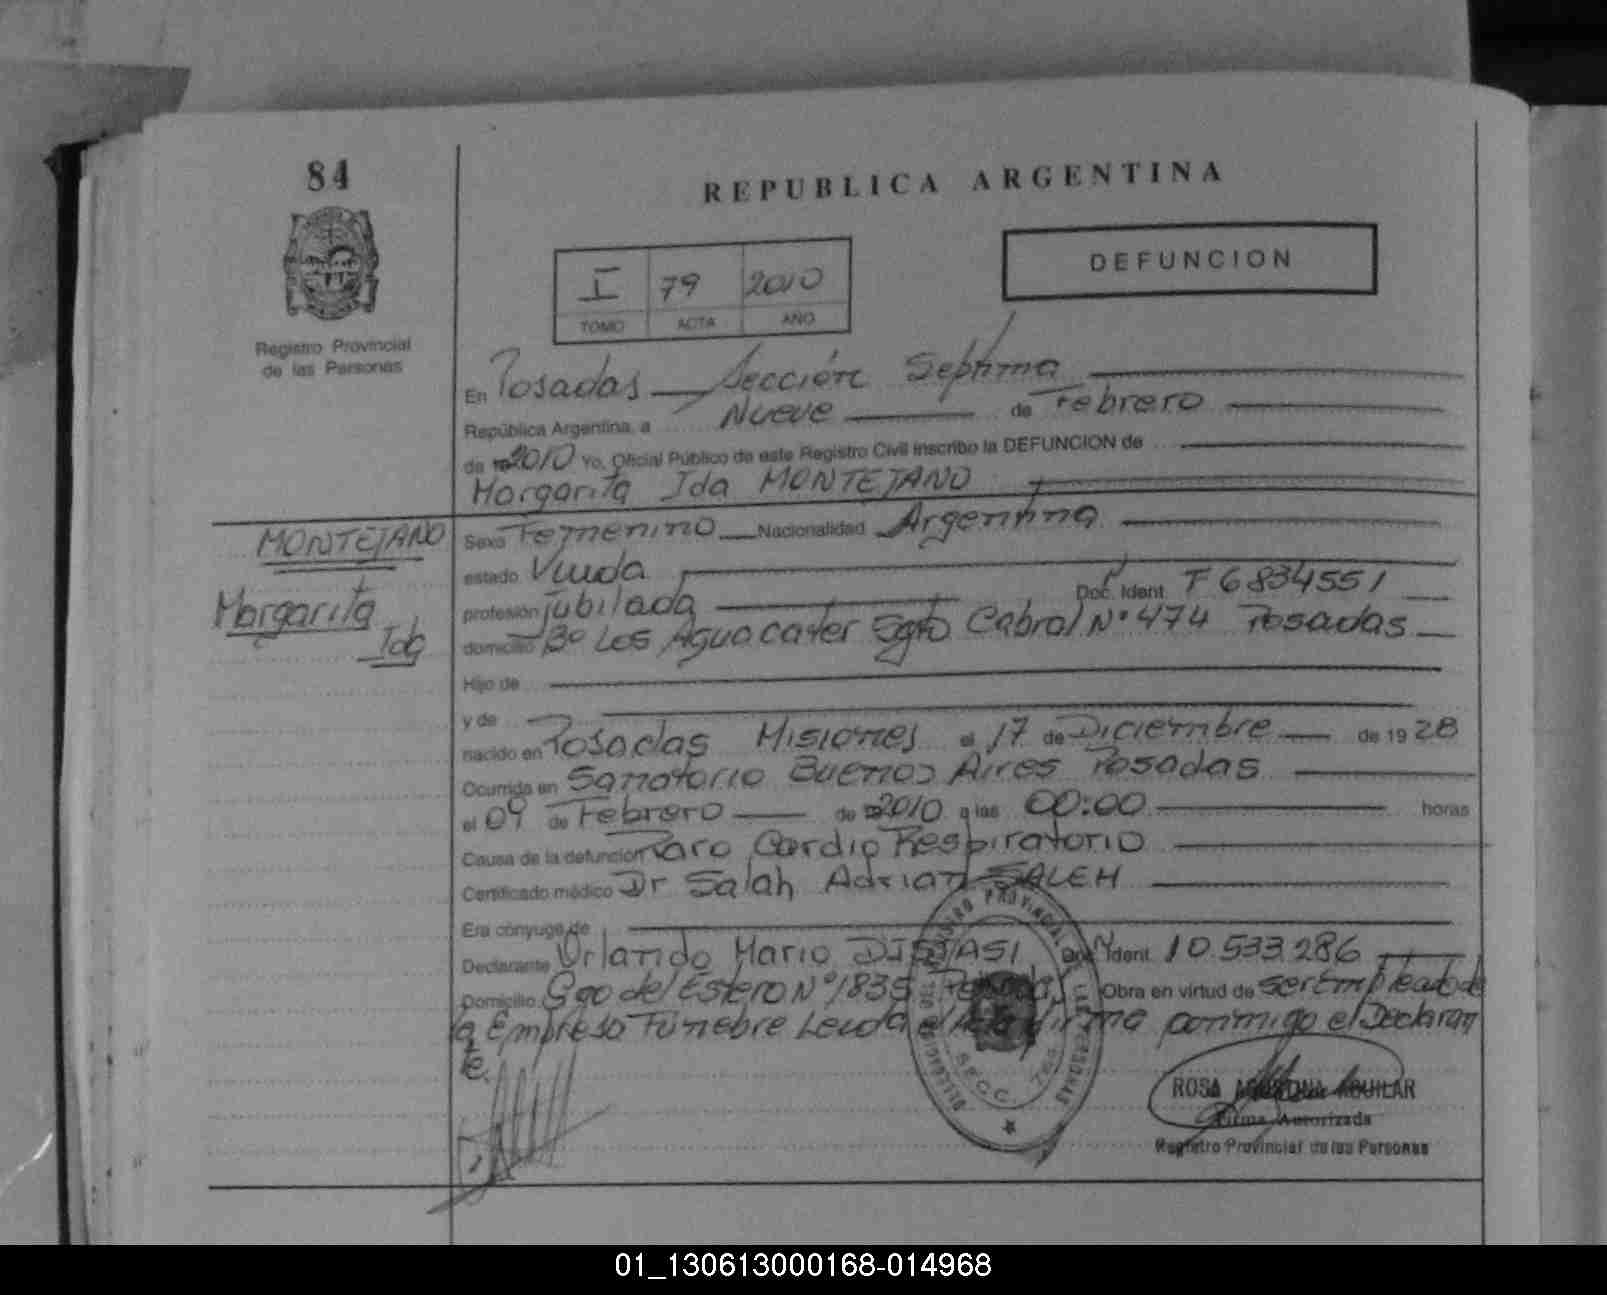 84
REPUBLICA ARGENTINA
Registro Provincial
de las Personas
I 79 2010
TOMO ACTA AÑO
DEFUNCION
En Posadas Sección Septima
República Argentina, a Nueve de Febrero
de 2010 Yo, Oficial Público de este Registro Civil inscribo la DEFUNCION de
Margarita Ida MONTEJANO
MONTEJANO
Margarita
Ida
Sexo Femenino Nacionalidad Argentina
estado Viuda
profesión jubilada Doc. Ident. F 6834551
domicilio Bº Los Aguacates Sgto Cabral Nº 474 Posadas
Hijo de
y de
nacido en Posadas Misiones el 17 de Diciembre de 1928
Ocurrida en Sanatorio Buenos Aires Posadas
el 09 de Febrero de 2010 a las 00:00 horas
Causa de la defunción Paro Cardio Respiratorio
Certificado médico Dr Salah Adrian SALEH
Era cónyuge de
Declarante Orlando Mario Doc. Ident. 10.533.286
Domicilio Sgo del Estero Nº 1835 Posadas Obra en virtud de ser Empleado de
la Empresa Funebre Leuda el Acta firma conmigo el Declaran
te.
REGISTRO PROVINCIAL DE LAS PERSONAS
ROSA AGUILAR
Firma Autorizada
Registro Provincial de las Personas
01_130613000168-014968